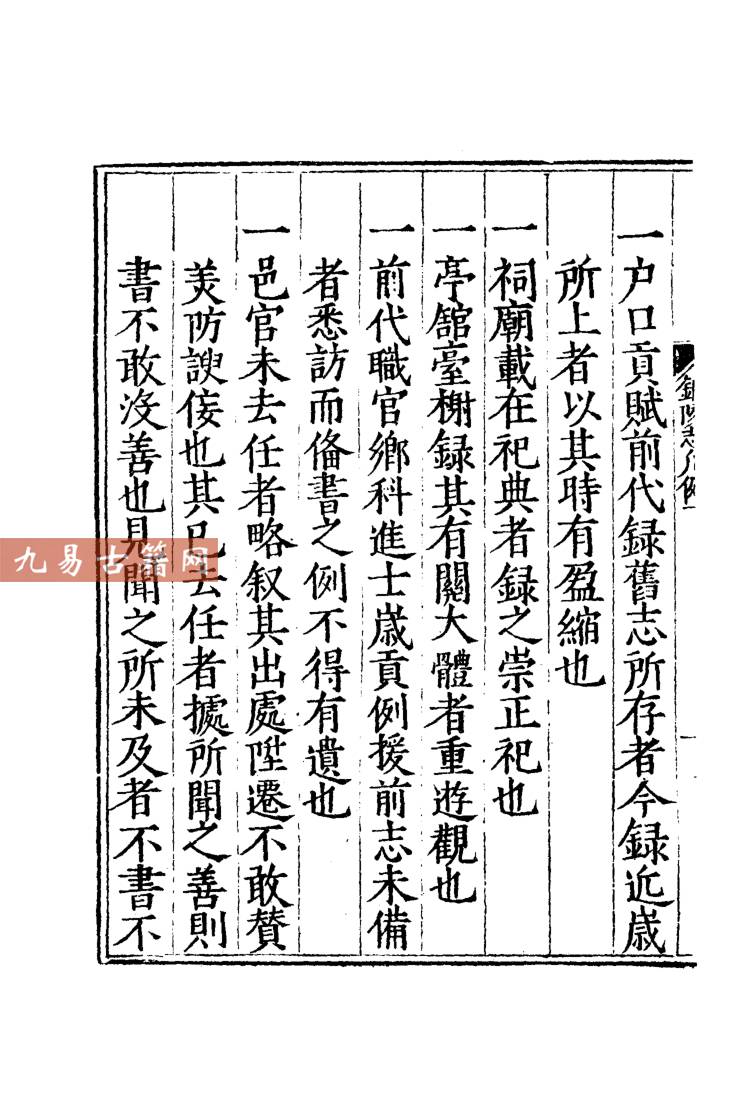 一戶口貢賦前代録舊志所存者今録近歳
所上者以其時有盈縮也
一祠廟載在祀典者録之崇正祀也
一亭舘臺榭録其有關大體者重遊觀也
一前代職官鄉科進士歳貢例援前志未備
者悉訪而俻書之例不得有遺也
一邑官未去任者略叙其出處陞遷不敢賛
美防諛佞也其已去任者據所聞之善則
書不敢没善也見聞之所未及者不書不
九易古籍网